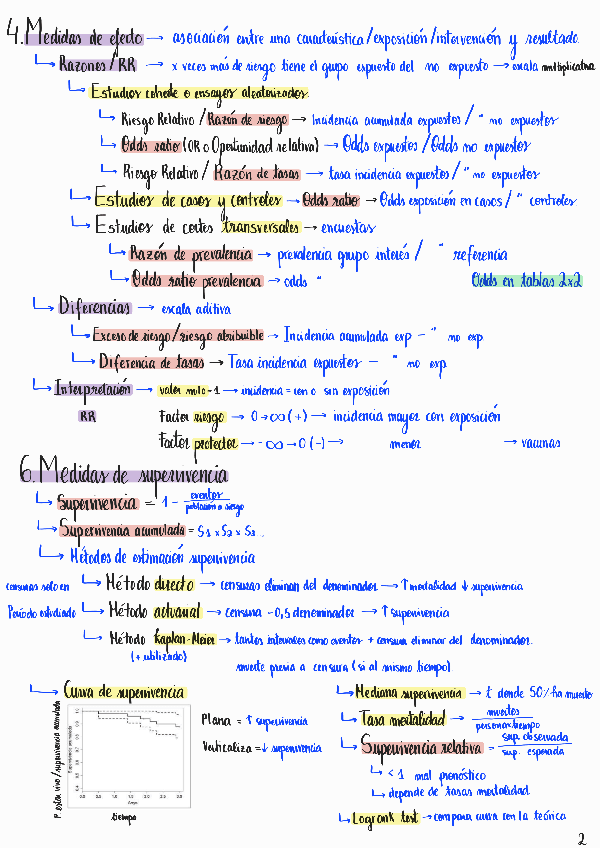 4. Medidas de efecto → asociación entre una característica/exposición/intervención y resultado.
↳ Razones/RR → x veces más de riesgo tiene el grupo expuesto del no expuesto → escala multiplicativa
↳ Estudios cohorte o ensayos aleatorizados.
↳ Riesgo Relativo/Razón de riesgo → Incidencia acumulada expuestos / " no expuestos
↳ Odds ratio (OR o Oportunidad relativa) → Odds expuestos / Odds no expuestos
↳ Riesgo Relativo/Razón de tasas → tasa incidencia expuestos / " no expuestos
↳ Estudios de casos y controles → Odds ratio → Odds exposición en casos / " controles
↳ Estudios de cortes transversales → encuestas
↳ Razón de prevalencia → prevalencia grupo interés / " referencia
↳ Odds ratio prevalencia → odds " Odds en tablas 2x2
↳ Diferencias → escala aditiva
↳ Exceso de riesgo/riesgo atribuible → Incidencia acumulada exp - " no exp
↳ Diferencia de tasas → Tasa incidencia expuestos - " no exp
↳ Interpretación → valor nulo - 1 → incidencia = con o sin exposición
RR Factor riesgo → 0→∞ (+) → incidencia mayor con exposición
Factor protector → -∞→0 (-) → menor → vacunas
6. Medidas de supervivencia
↳ Supervivencia = 1 - eventos / población a riesgo
↳ Supervivencia acumulada = S1 x S2 x S3.
↳ Métodos de estimación supervivencia
censuras solo en ↳ Método directo → censuras eliminan del denominador → ↑ mortalidad ↓ supervivencia
Periodo estudiado ↳ Método actuarial → censura - 0,5 denominador → ↑ supervivencia
↳ Método Kaplan-Meier → tantos intervalos como eventos + censura eliminar del denominador.
(+ utilizado) muerte previa a censura (si al mismo tiempo)
↳ Curva de supervivencia
P. estar vivo/supervivencia acumulada
Plana = ↑ supervivencia
Verticaliza = ↓ supervivencia
0.0 0.5 1.0 1.5 2.0 2.5 3.0
tiempo
↳ Mediana supervivencia → t donde 50% ha muerto
↳ Tasa mortalidad → muertes / personas x tiempo
↳ Supervivencia relativa = sup. observada / sup. esperada
↳ < 1 mal pronóstico
↳ depende de tasas mortalidad
↳ Logrank test → compara curva con la teórica
2